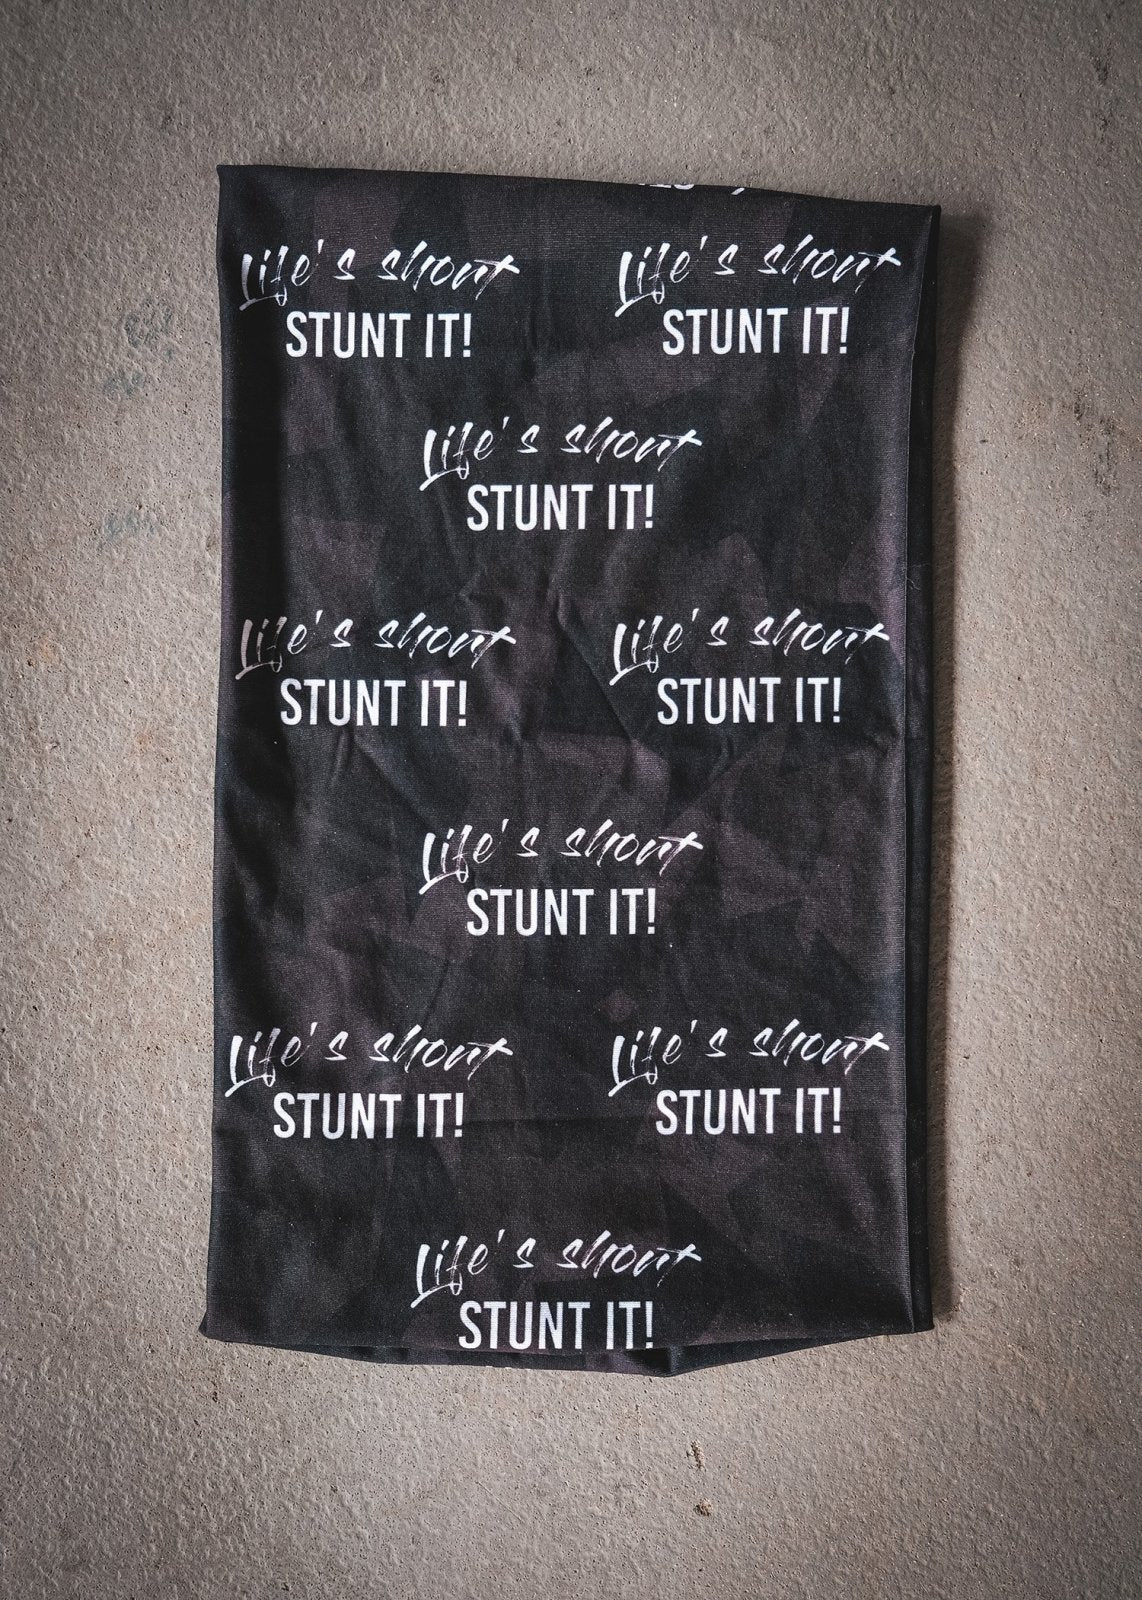 Life's short
STUNT IT!
Life's short
STUNT IT!
Life's short
STUNT IT!
Life's short
STUNT IT!
Life's short
STUNT IT!
Life's short
STUNT IT!
Life's short
STUNT IT!
Life's short
STUNT IT!
Life's short
STUNT IT!